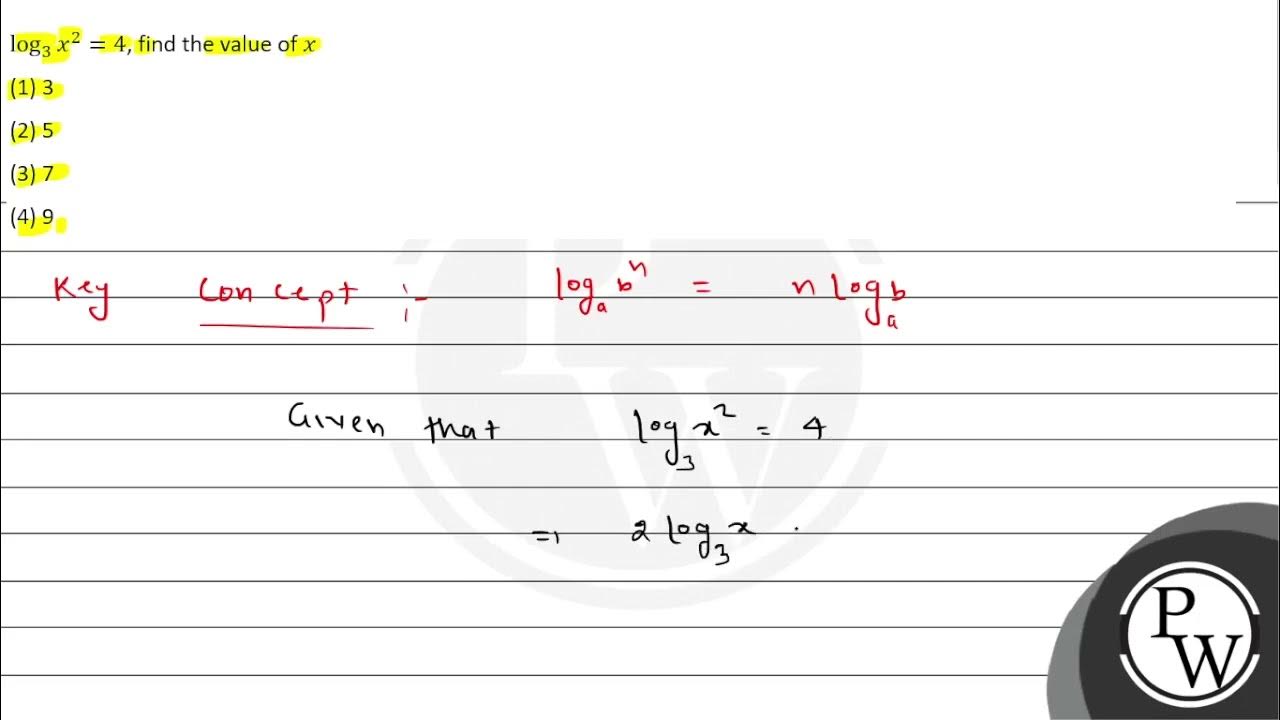 log₃ x² = 4, find the value of x
(1) 3
(2) 5
(3) 7
(4) 9
Key Concept :- logₐ bⁿ = n logₐ b
Given that log₃ x² = 4
⇒ 2 log₃ x
PW